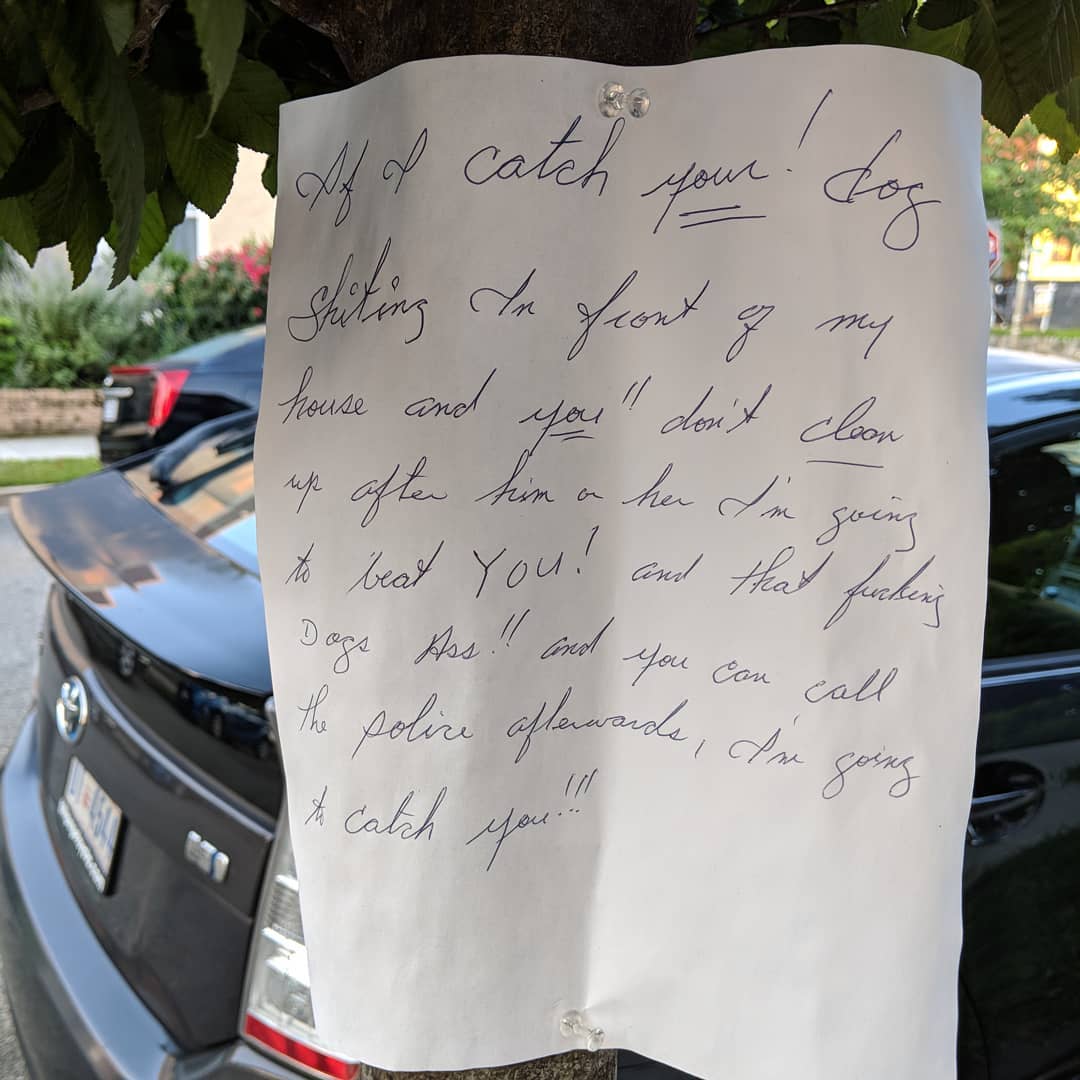 If I catch your! dog
Shiting In front of my
house and you!! don't clean
up after him or her I'm going
to beat YOU! and that fucking
Dogs Ass!! and you can call
the police afterwards, I'm going
to catch you!!!